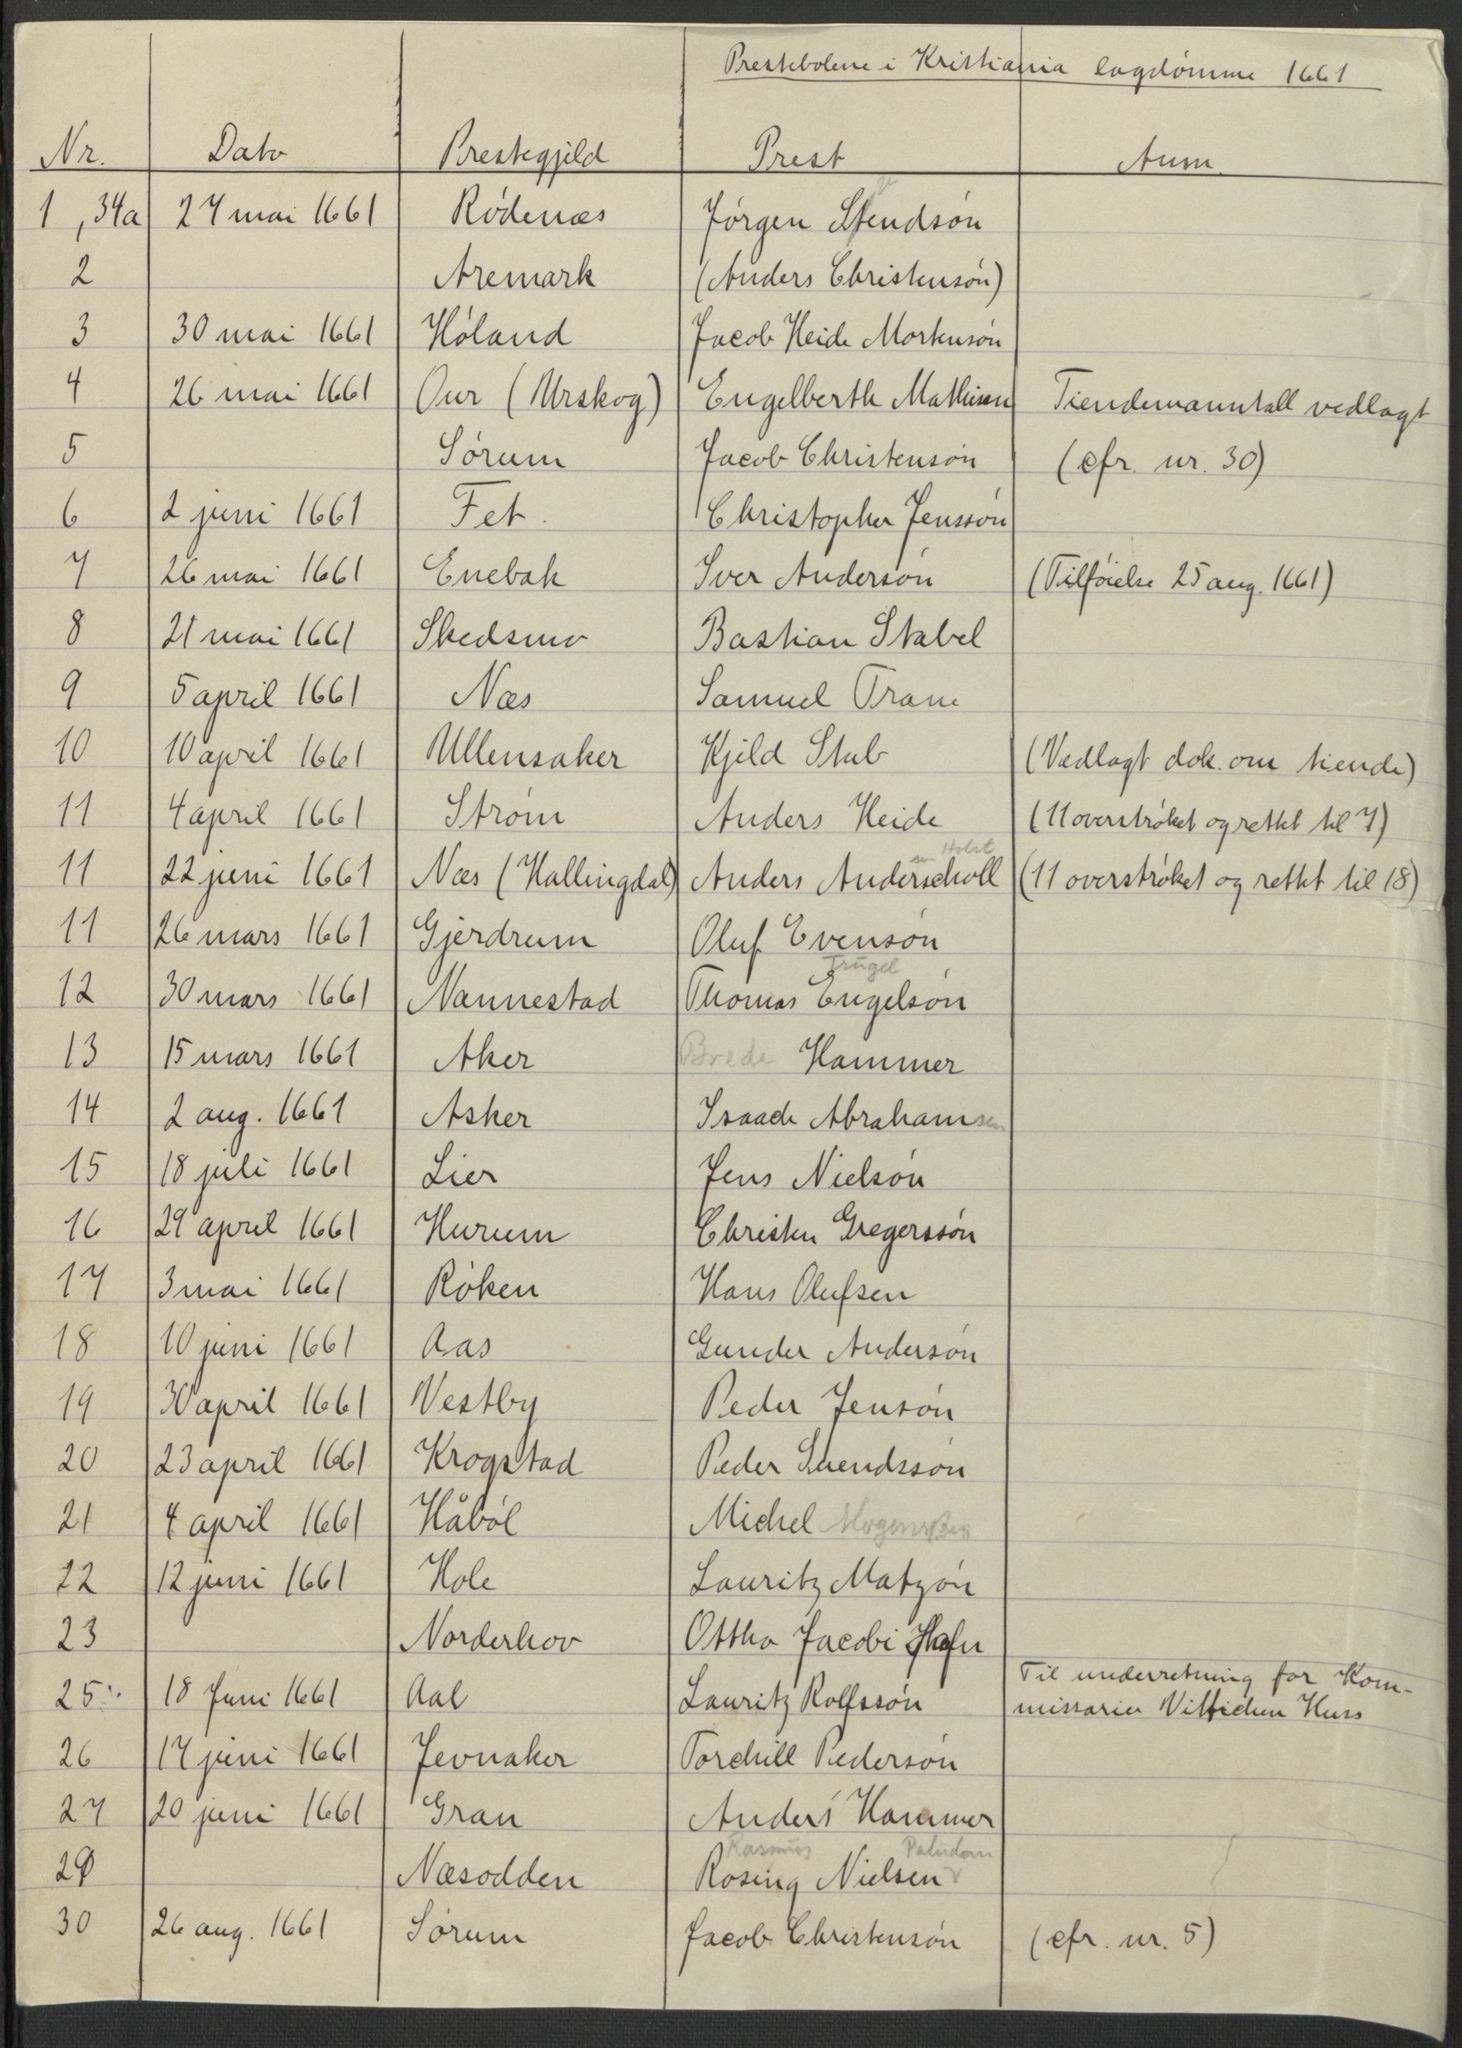 Prestebolene i Kristiania lagdømme 1661
Nr. Dato Prestegjeld Prest Anm.
1, 34a 27 mai 1661 Rødenæs Jørgen Stendsøn
2 Aremark (Anders Christensøn)
3 30 mai 1661 Høland Jacob Heide Mortensøn
4 26 mai 1661 Our (Urskog) Engelberth Mathisen Tiendemanntall vedlagt
5 Sørum Jacob Christensøn (cfr. nr. 30)
6 2 juni 1661 Fet. Christopher Jenssøn
7 26 mai 1661 Enebak Iver Andersøn (Tilføielse 25 aug. 1661)
8 21 mai 1661 Skedsmo Bastian Stabel
9 5 april 1661 Næs Samuel Trane
10 10 april 1661 Ullensaker Kjeld Stub (Vedlagt dok. om tiende)
11 4 april 1661 Strøm Anders Heide (11 overstrøket og rettet til 7)
sen Holst
11 22 juni 1661 Næs (Hallingdal) Anders Anderscholl (11 overstrøket og rettet til 18)
11 26 mars 1661 Gjerdrum Oluf Evensøn
Trugel
12 30 mars 1661 Nannestad Thomas Engelsøn
13 15 mars 1661 Aker Brede Hammer
14 2 aug. 1661 Asker Isaach Abrahamsen
15 18 juli 1661 Lier Jens Nielsøn
16 29 april 1661 Hurum Christen Gregerssøn
17 3 mai 1661 Røken Hans Olufsen
18 10 juni 1661 Aas Gunder Andersøn
19 30 april 1661 Vestby Peder Jensøn
20 23 april 1661 Krogstad Peder Suendssøn
21 4 april 1661 Håbøl Michel
22 12 juni 1661 Hole Lauritz Matzøn
23 Norderhov Ottho Jacobi
25 18 Juni 1661 Aal Lauritz Rolfssøn Til underretning for Kom-
missarier Vittichen Huss
26 17 juni 1661 Jevnaker Torchill Pedersøn
27 20 juni 1661 Gran Anders Hammer
Rasmus Paludan
29 Næsodden Rosing Nielsen
30 26 aug. 1661 Sørum Jacob Christensøn (cfr. nr. 5)